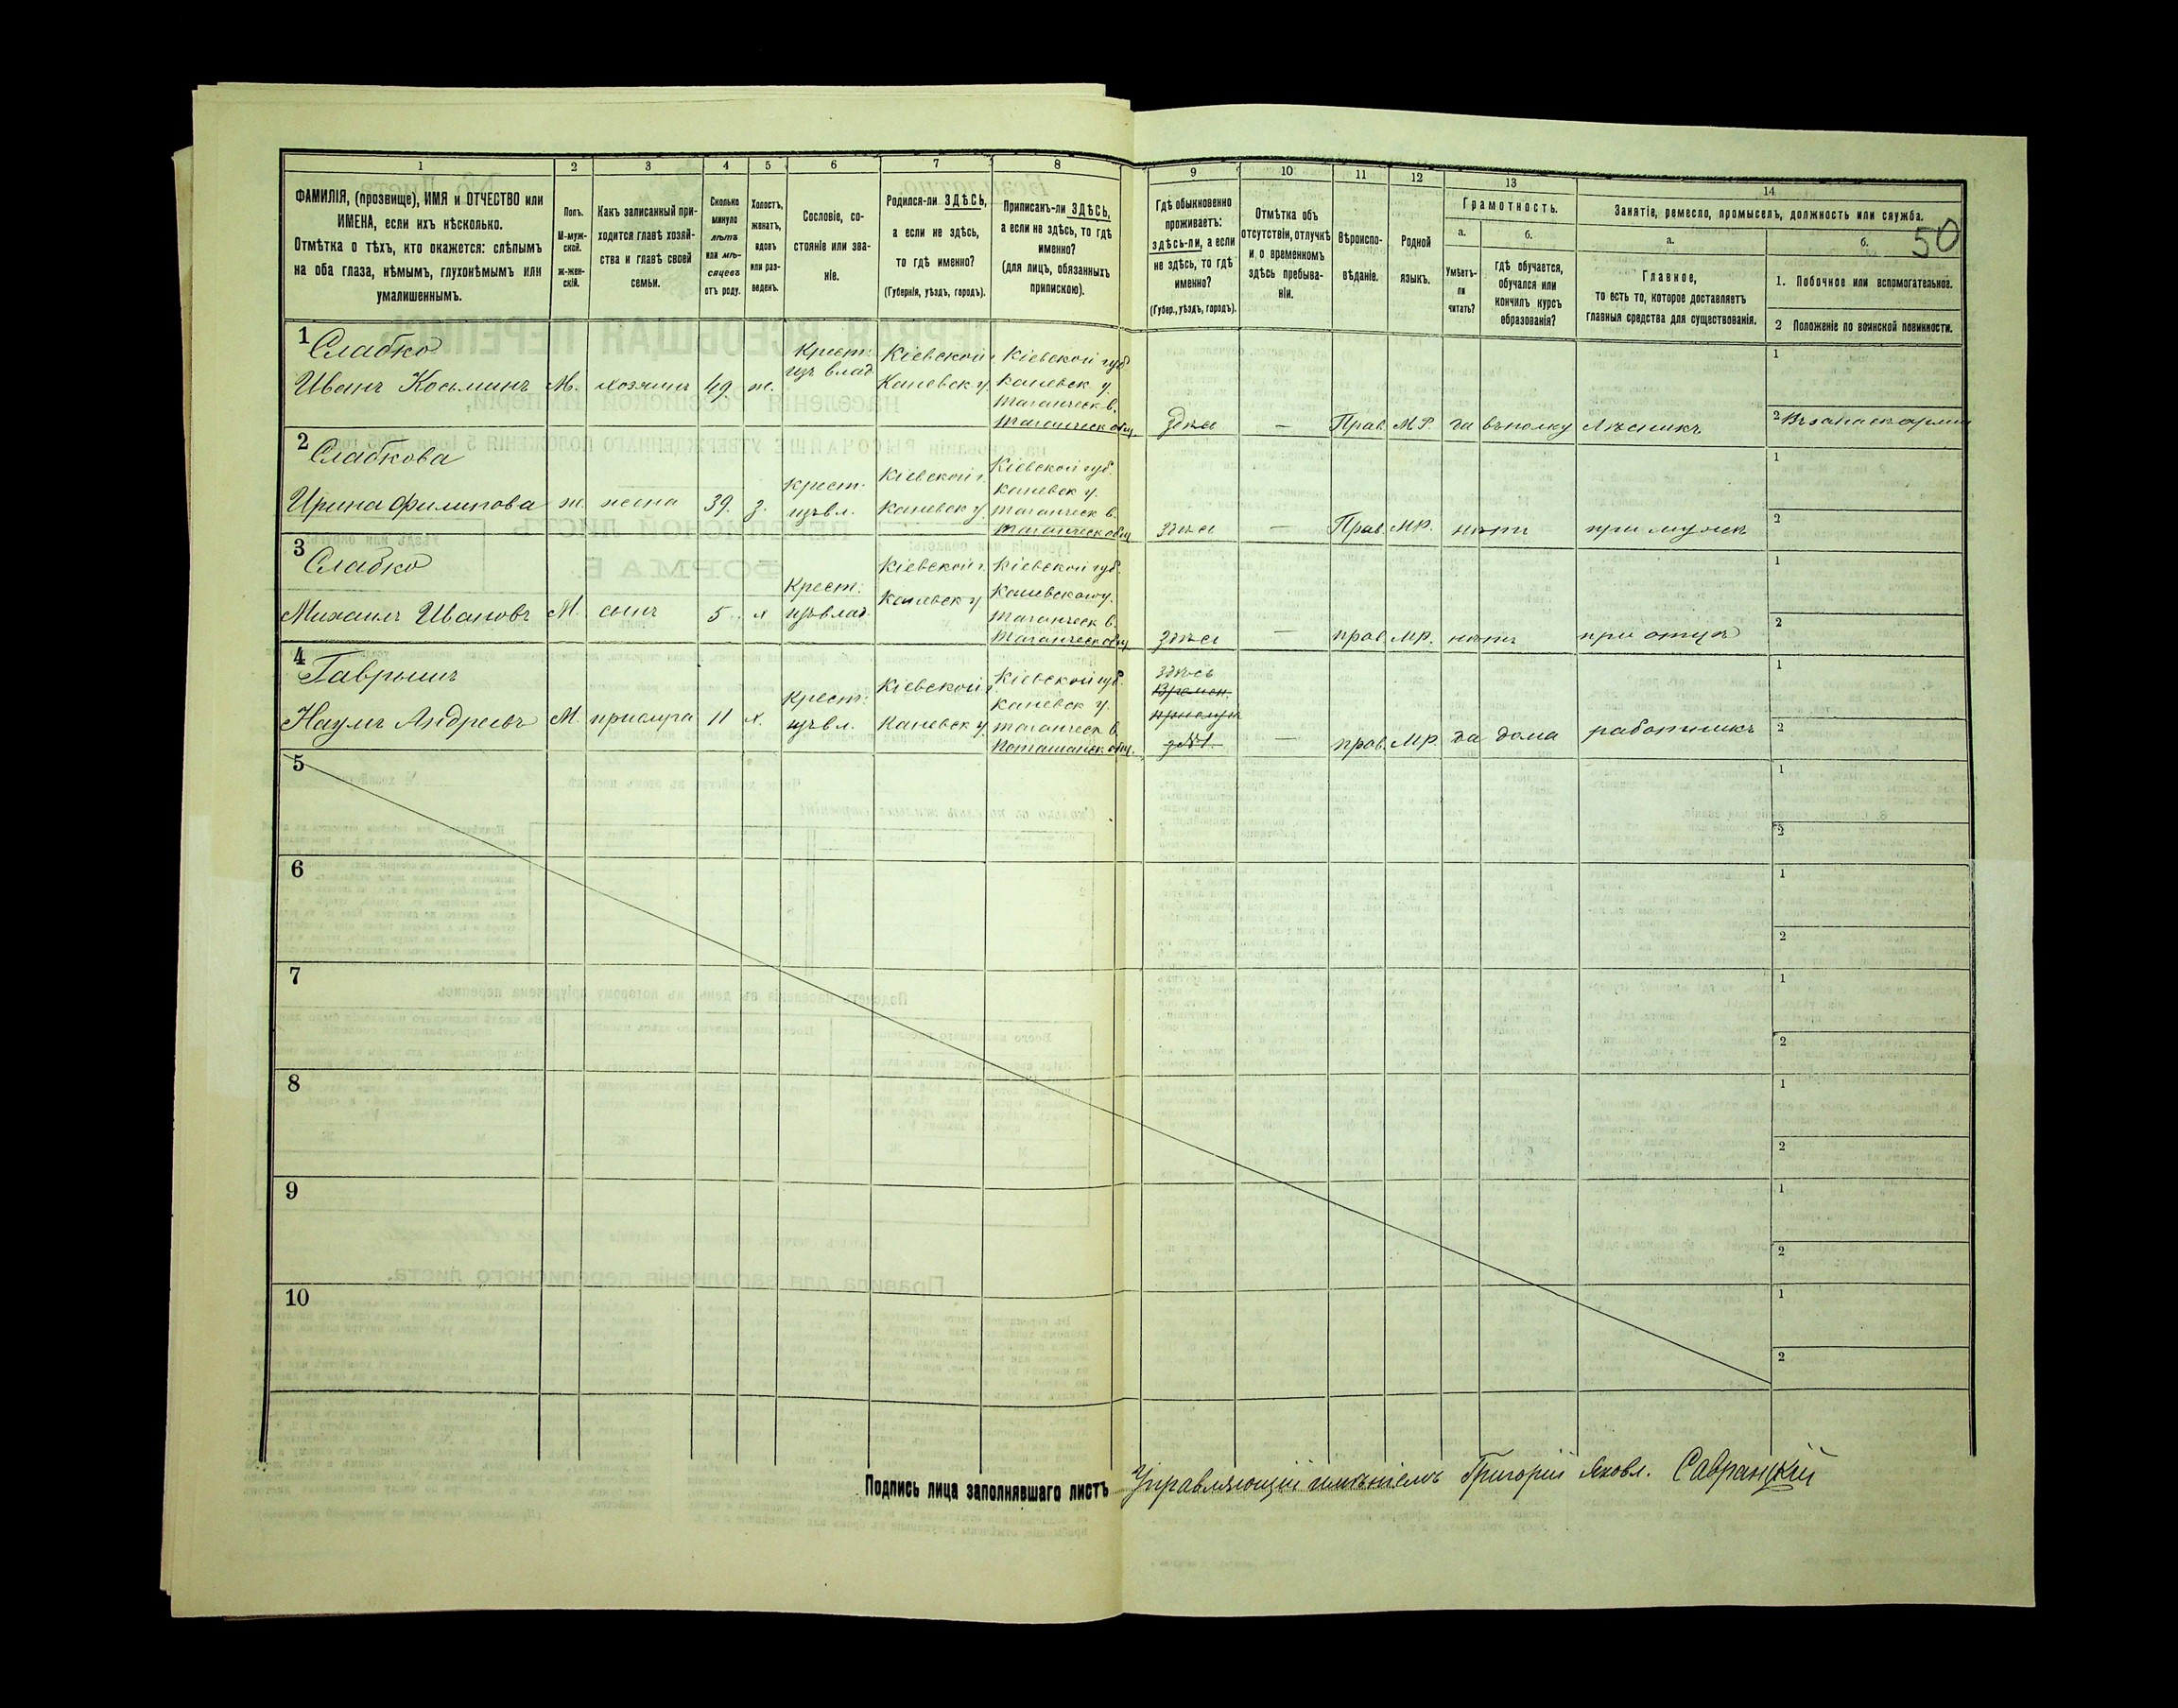 1
2
3
4
5
6
7
8
9
10
11
12
13
14
ФАМИЛІЯ, (прозвище), ИМЯ и ОТЧЕСТВО или
ИМЕНА, если ихъ нѣсколько.
Отмѣтка о тѣхъ, кто окажется: слѣпымъ
на оба глаза, нѣмымъ, глухонѣмымъ или
умалишеннымъ.
Полъ.
М-муж-
ской.
Ж-жен-
скій.
Какъ записанный при-
ходится главѣ хозяй-
ства и главѣ своей
семьи.
Сколько
минуло
лѣтъ
или мѣ-
сяцевъ
отъ роду.
Холостъ,
женатъ,
вдовъ
или раз-
веденъ.
Сословіе, со-
стояніе или зва-
ніе.
Родился-ли ЗДѢСЬ,
а если не здѣсь,
то гдѣ именно?
(Губернія, уѣздъ, городъ).
Приписанъ-ли ЗДѢСЬ,
а если не здѣсь, то гдѣ
именно?
(для лицъ, обязанныхъ
припискою).
Гдѣ обыкновенно
проживаетъ:
здѣсь-ли, а если
не здѣсь, то гдѣ
именно?
(Губер., уѣздъ, городъ).
Отмѣтка объ
отсутствіи, отлучкѣ
и о временномъ
здѣсь пребыва-
ніи.
Вѣроиспо-
вѣданіе.
Родной
языкъ.
Грамотность.
а.
Умѣетъ-
ли
читать?
б.
гдѣ обучается,
обучался или
кончилъ курсъ
образованія?
Занятіе, ремесло, промыселъ, должность или служба.
а.
Главное,
то есть то, которое доставляетъ
главныя средства для существованія.
б.
50
1. Побочное или вспомогательное.
2 Положеніе по воинской повинности.
1 Слабко
Иванъ Косьминъ
М.
хозяинъ
49.
ж.
Крест.
изъ влад.
Кіевской г.
Каневск у.
Кіевской губ
Каневск у.
Таганческ в.
Таганческ общ.
Здѣсь
—
Прав.
МР.
да
въ полку
Лѣсникъ
1
2 Въ запаск арміи
2 Слабкова
Ирина Филипова
ж.
жена
39.
з.
Крест.
изъ вл.
Кіевской г.
Каневск у.
Кіевской губ.
Каневск у.
Таганческ в.
Таганческ общ
здѣсь
—
Прав.
МР.
нѣтъ
при мужѣ
1
2
3 Слабко
Михаилъ Ивановъ
М.
сынъ
5.
х
Крест.
изъ влад.
Кіевской г.
Каневск у.
Кіевской губ.
Каневскому.
Таганческ в.
Таганческ общ
здѣсь
—
прав.
МР.
нѣтъ
при отцѣ
1
2
4 Гаврышъ
Наумъ Андреевъ
М.
прислуга
11
х.
Крест.
изъ вл.
Кіевской г.
Каневск у.
Кіевской губ.
Каневск у.
Таганческ в.
Поташанск общ.
здѣсь
Времен.
—
прав.
МР.
да
дома
работникъ
1
2
5
1
2
6
1
2
7
1
2
8
1
2
9
1
2
10
1
2
Подпись лица заполнявшаго листъ Управляющій имѣніемъ Григорій Яковл. Савранцкій